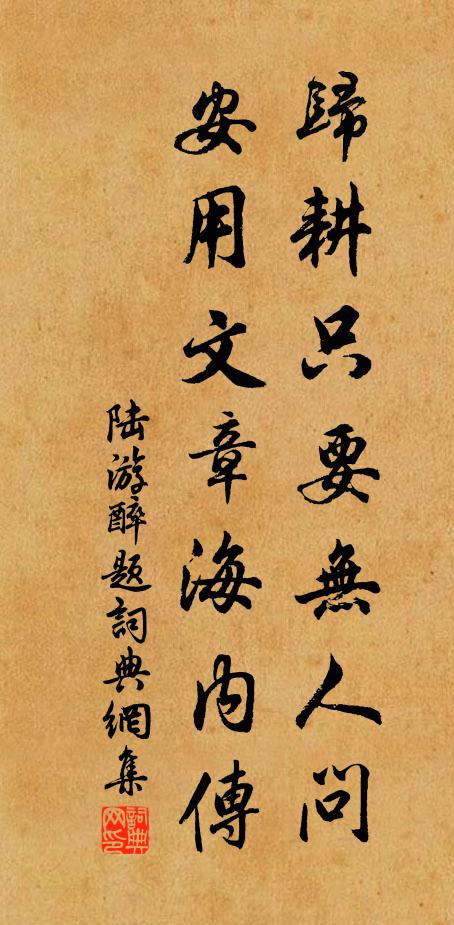 歸耕只要無人問
安用文章海内傳
陆游醉题詞典網集
詞典网印